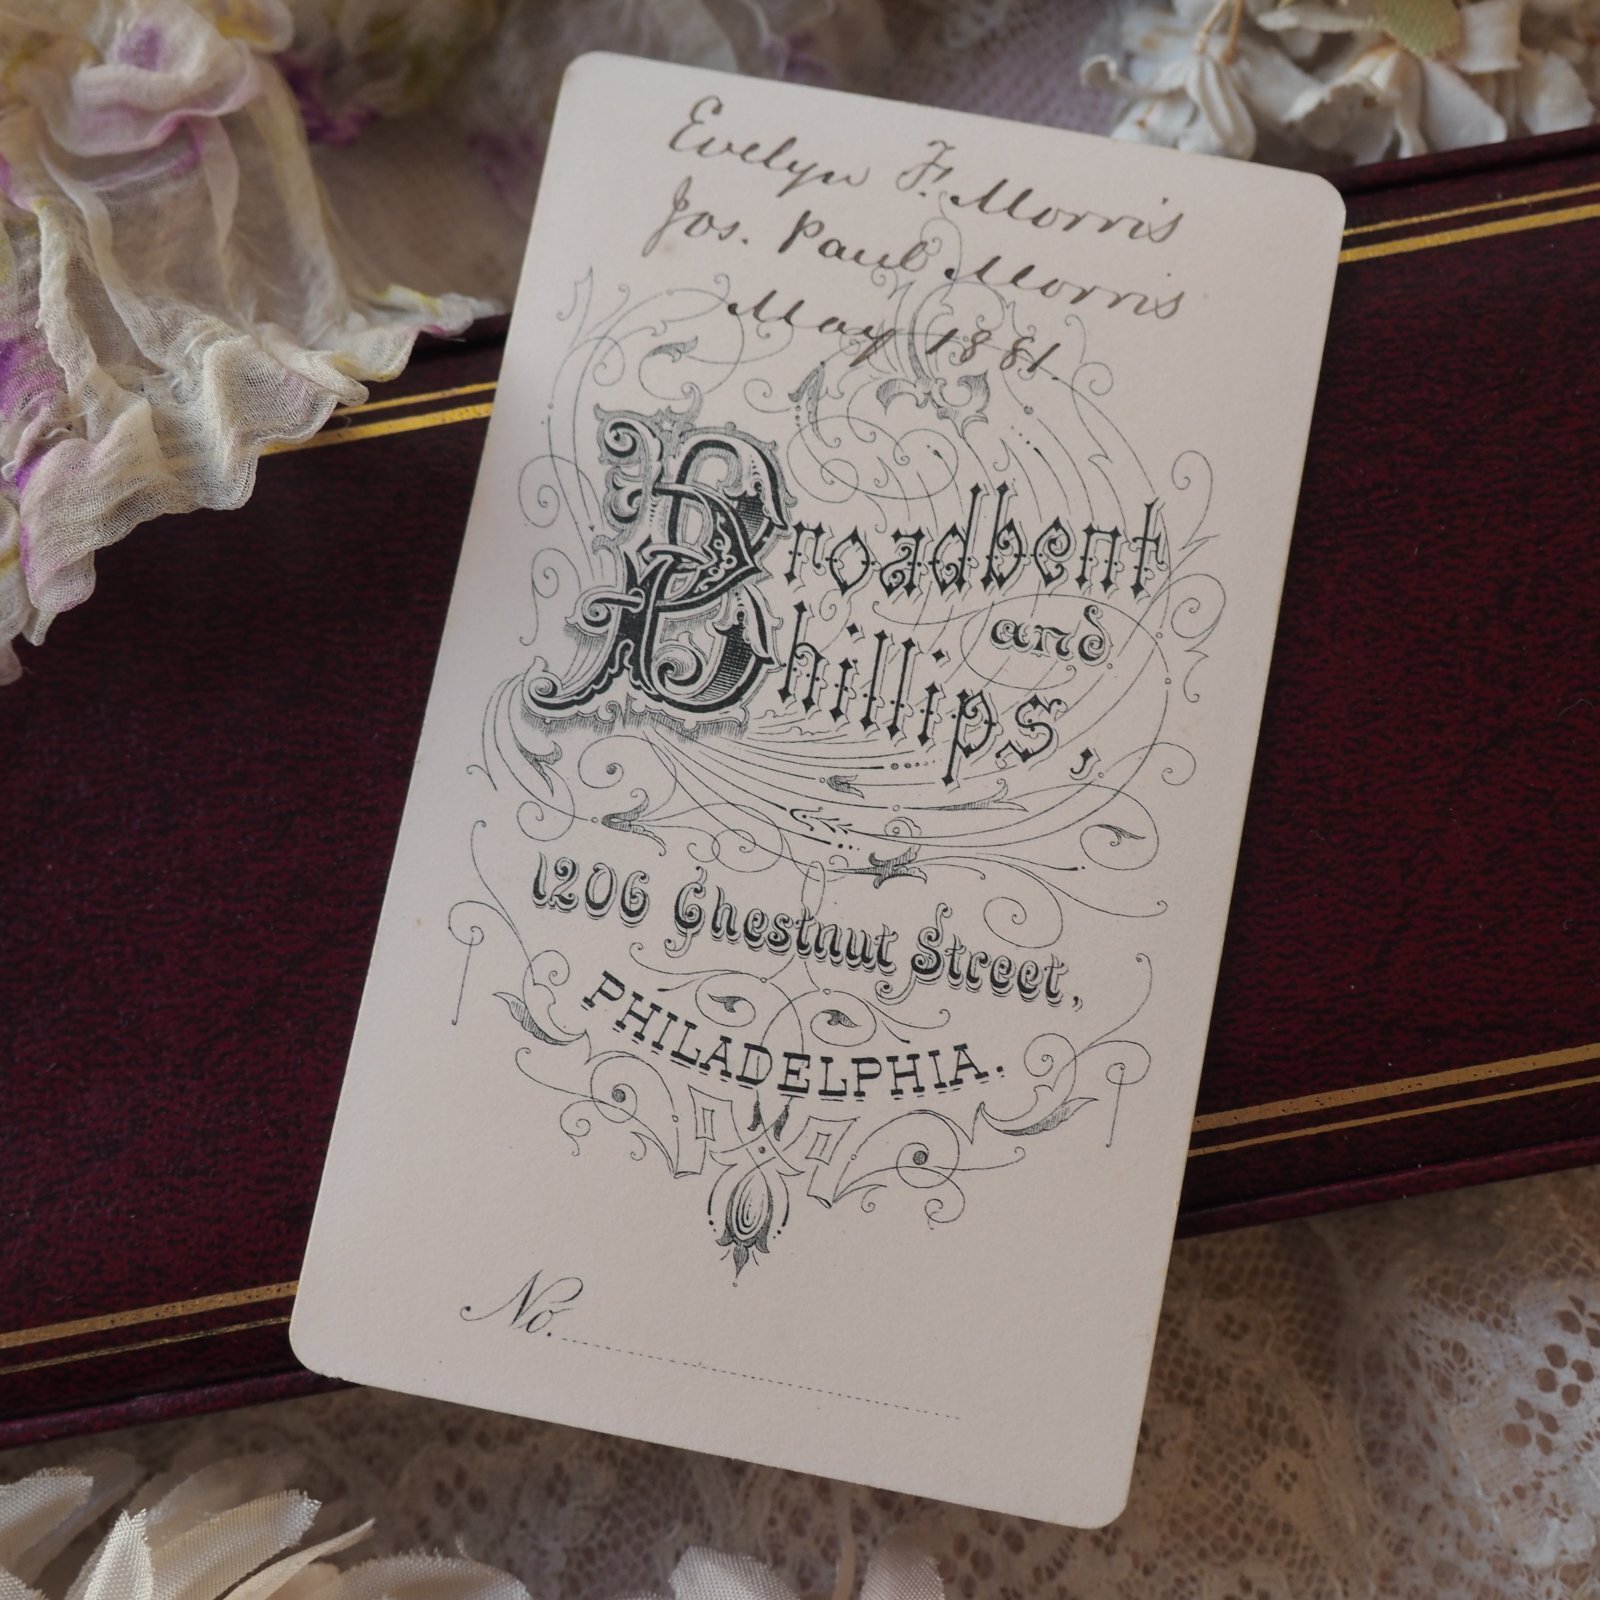 Evelyn F. Morris
Jos. Paul Morris
May 1881.
Broadbent
and
Phillips,
1206 Chestnut Street,
PHILADELPHIA.
No.